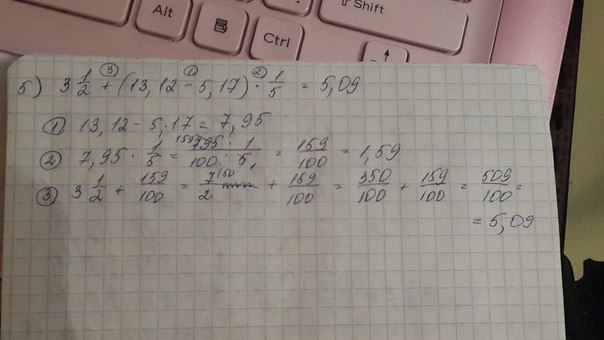 Alt
Ctrl
⇧ Shift
5) 3 1/2 + (13,12 - 5,17) · 1/5 = 5,09
③ ① ②
① 13,12 - 5,17 = 7,95
② 7,95 · 1/5 = 159 795 · 1 / 100 · 5 1 = 159/100 = 1,59
③ 3 1/2 + 159/100 = 7 (50 / 2 + 159/100 = 350/100 + 159/100 = 509/100 =
= 5,09